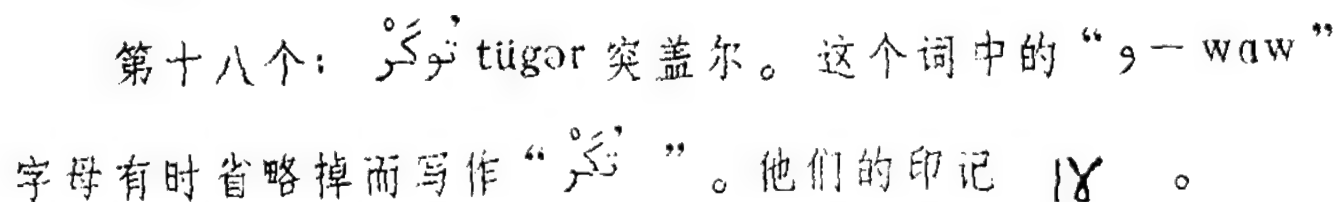 第十八个：تُوكَرْ tügər 突盖尔。这个词中的“و — waw”
字母有时省略掉而写作“تُكَرْ”。他们的印记 。